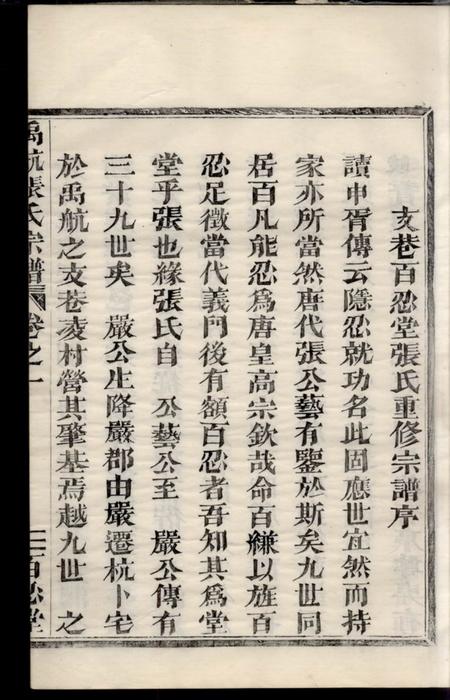 支巷百忍堂張氏重修宗譜序
讀申胥傳云隱忍就功名此固應世宜然而持
家亦所當然唐代張公藝有鑒於斯矣九世同
居百凡能忍爲唐皇高宗欽哉命百縑以旌百
忍足徵當代義門後有額百忍者吾知其爲堂
堂乎張也緣張氏自 公藝公至 嚴公傳有
三十九世矣 嚴公生降嚴郡由嚴遷杭卜宅
於禹航之支巷凌村營其肇基焉越九世 之
禹航張氏宗譜 卷之一 百忍堂